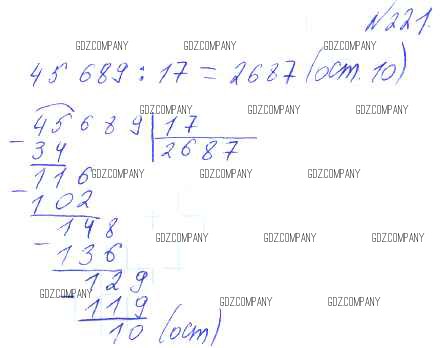 N221.
GDZ.COMPANY GDZ.COMPANY GDZ.COMPANY
45 689 : 17 = 2687 (ост. 10)
45689 | 17
GDZ.COMPANY GDZ.COMPANY GDZ.COMPANY
- 34 | 2687
116
GDZ.COMPANY GDZ.COMPANY GDZ.COMPANY
- 102
148
GDZ.COMPANY GDZ.COMPANY GDZ.COMPANY
- 136
129
GDZ.COMPANY GDZ.COMPANY GDZ.COMPANY
- 119
10 (ост)